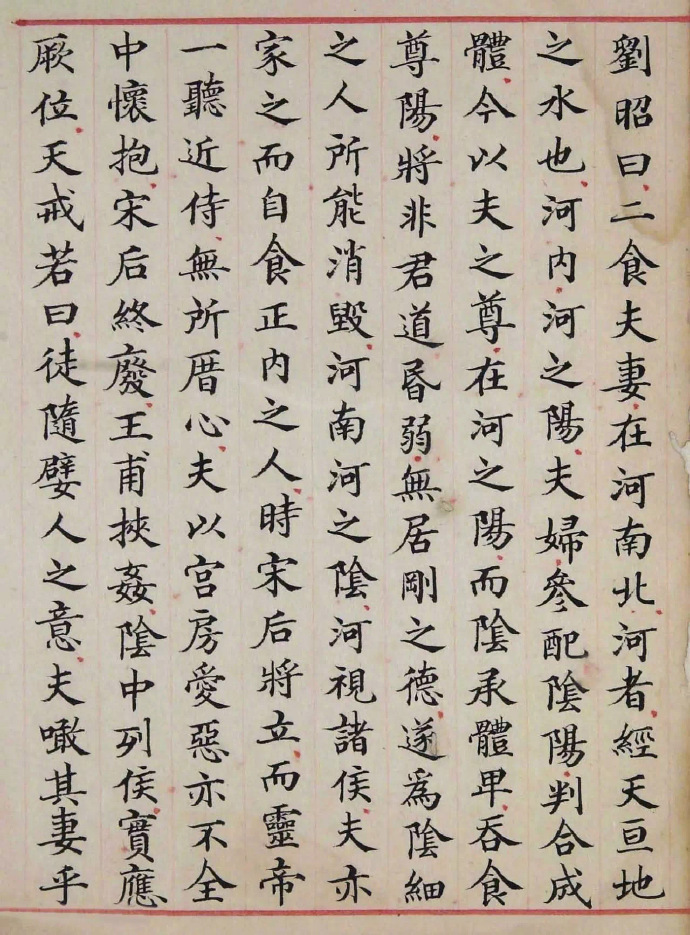 劉昭曰二食夫妻在河南北河者經天亘地
之水也河内河之陽夫婦參配陰陽判合成
體今以夫之尊在河之陽而陰承體卑吞食
尊陽將非君道昬弱無居剛之德遂為陰細
之人所能消毁河南河之陰河視諸侯夫亦
家之而自食正内之人時宋后將立而靈帝
一聽近侍無所厝心夫以宫房愛惡亦不全
中懷抱宋后終廢王甫挾姦陰中列侯實應
厥位天戒若曰徒隨嬖人之意夫噉其妻乎